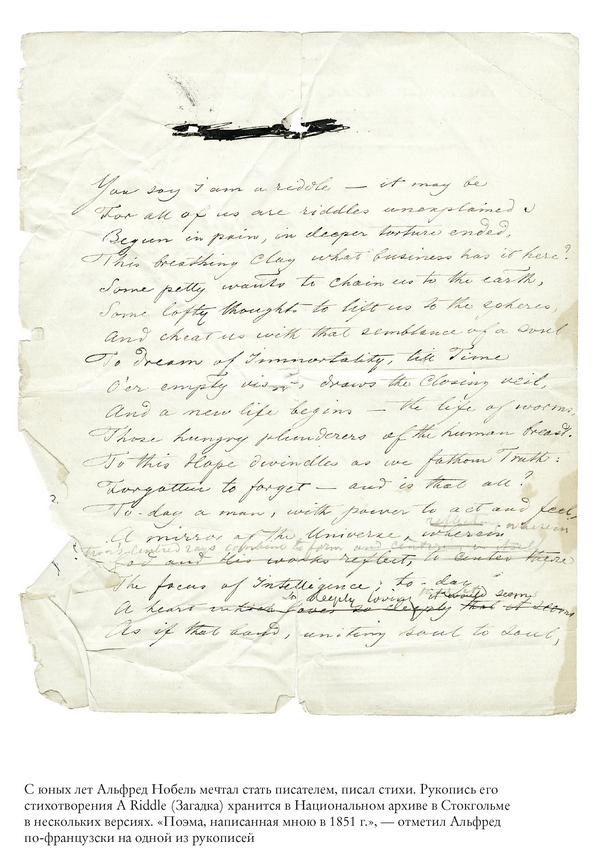 You say I am a riddle — it may be
For all of us are riddles unexplained
Begun in pain, in deeper torture ended,
This breathing Clay what business has it here?
Some petty wants to chain us to the earth,
Some lofty thoughts to lift us to the spheres,
And cheat us with that semblance of a soul
To dream of Immortality, till Time
O'er empty visions draws the Closing veil,
And a new life begins — the life of worms,
Those hungry plunderers of the human breast.
To this Hope dwindles as we fathom Truth:
Forgotten to forget — and is that all?
To-day a man, with power to act and feel
wherein
A mirror of the Universe, wherein
rays combine to form
God and His works reflect, to center there
The focus of Intelligence; to-day
deeply loving
A heart which loves so deeply that it seems
As if that band, uniting soul to soul,
С юных лет Альфред Нобель мечтал стать писателем, писал стихи. Рукопись его
стихотворения A Riddle (Загадка) хранится в Национальном архиве в Стокгольме
в нескольких версиях. «Поэма, написанная мною в 1851 г.», — отметил Альфред
по-французски на одной из рукописей